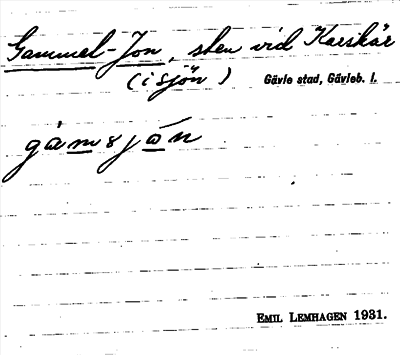 Gammel-Jon, sten vid Karskär
(i sjön) Gävle stad, Gävleb. l.
gàmsjón
EMIL LEMHAGEN 1931.